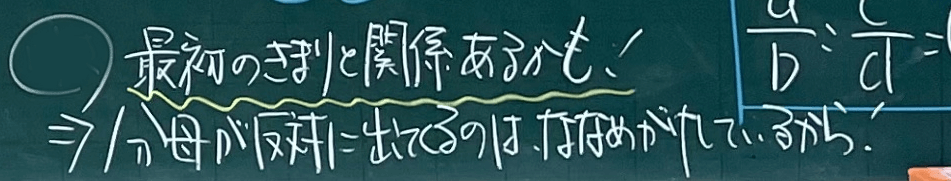 最初のきまりと関係あるかも!
⇒分母が反対に出てくるのは、ななめがけしているから!
a/b : c/d =